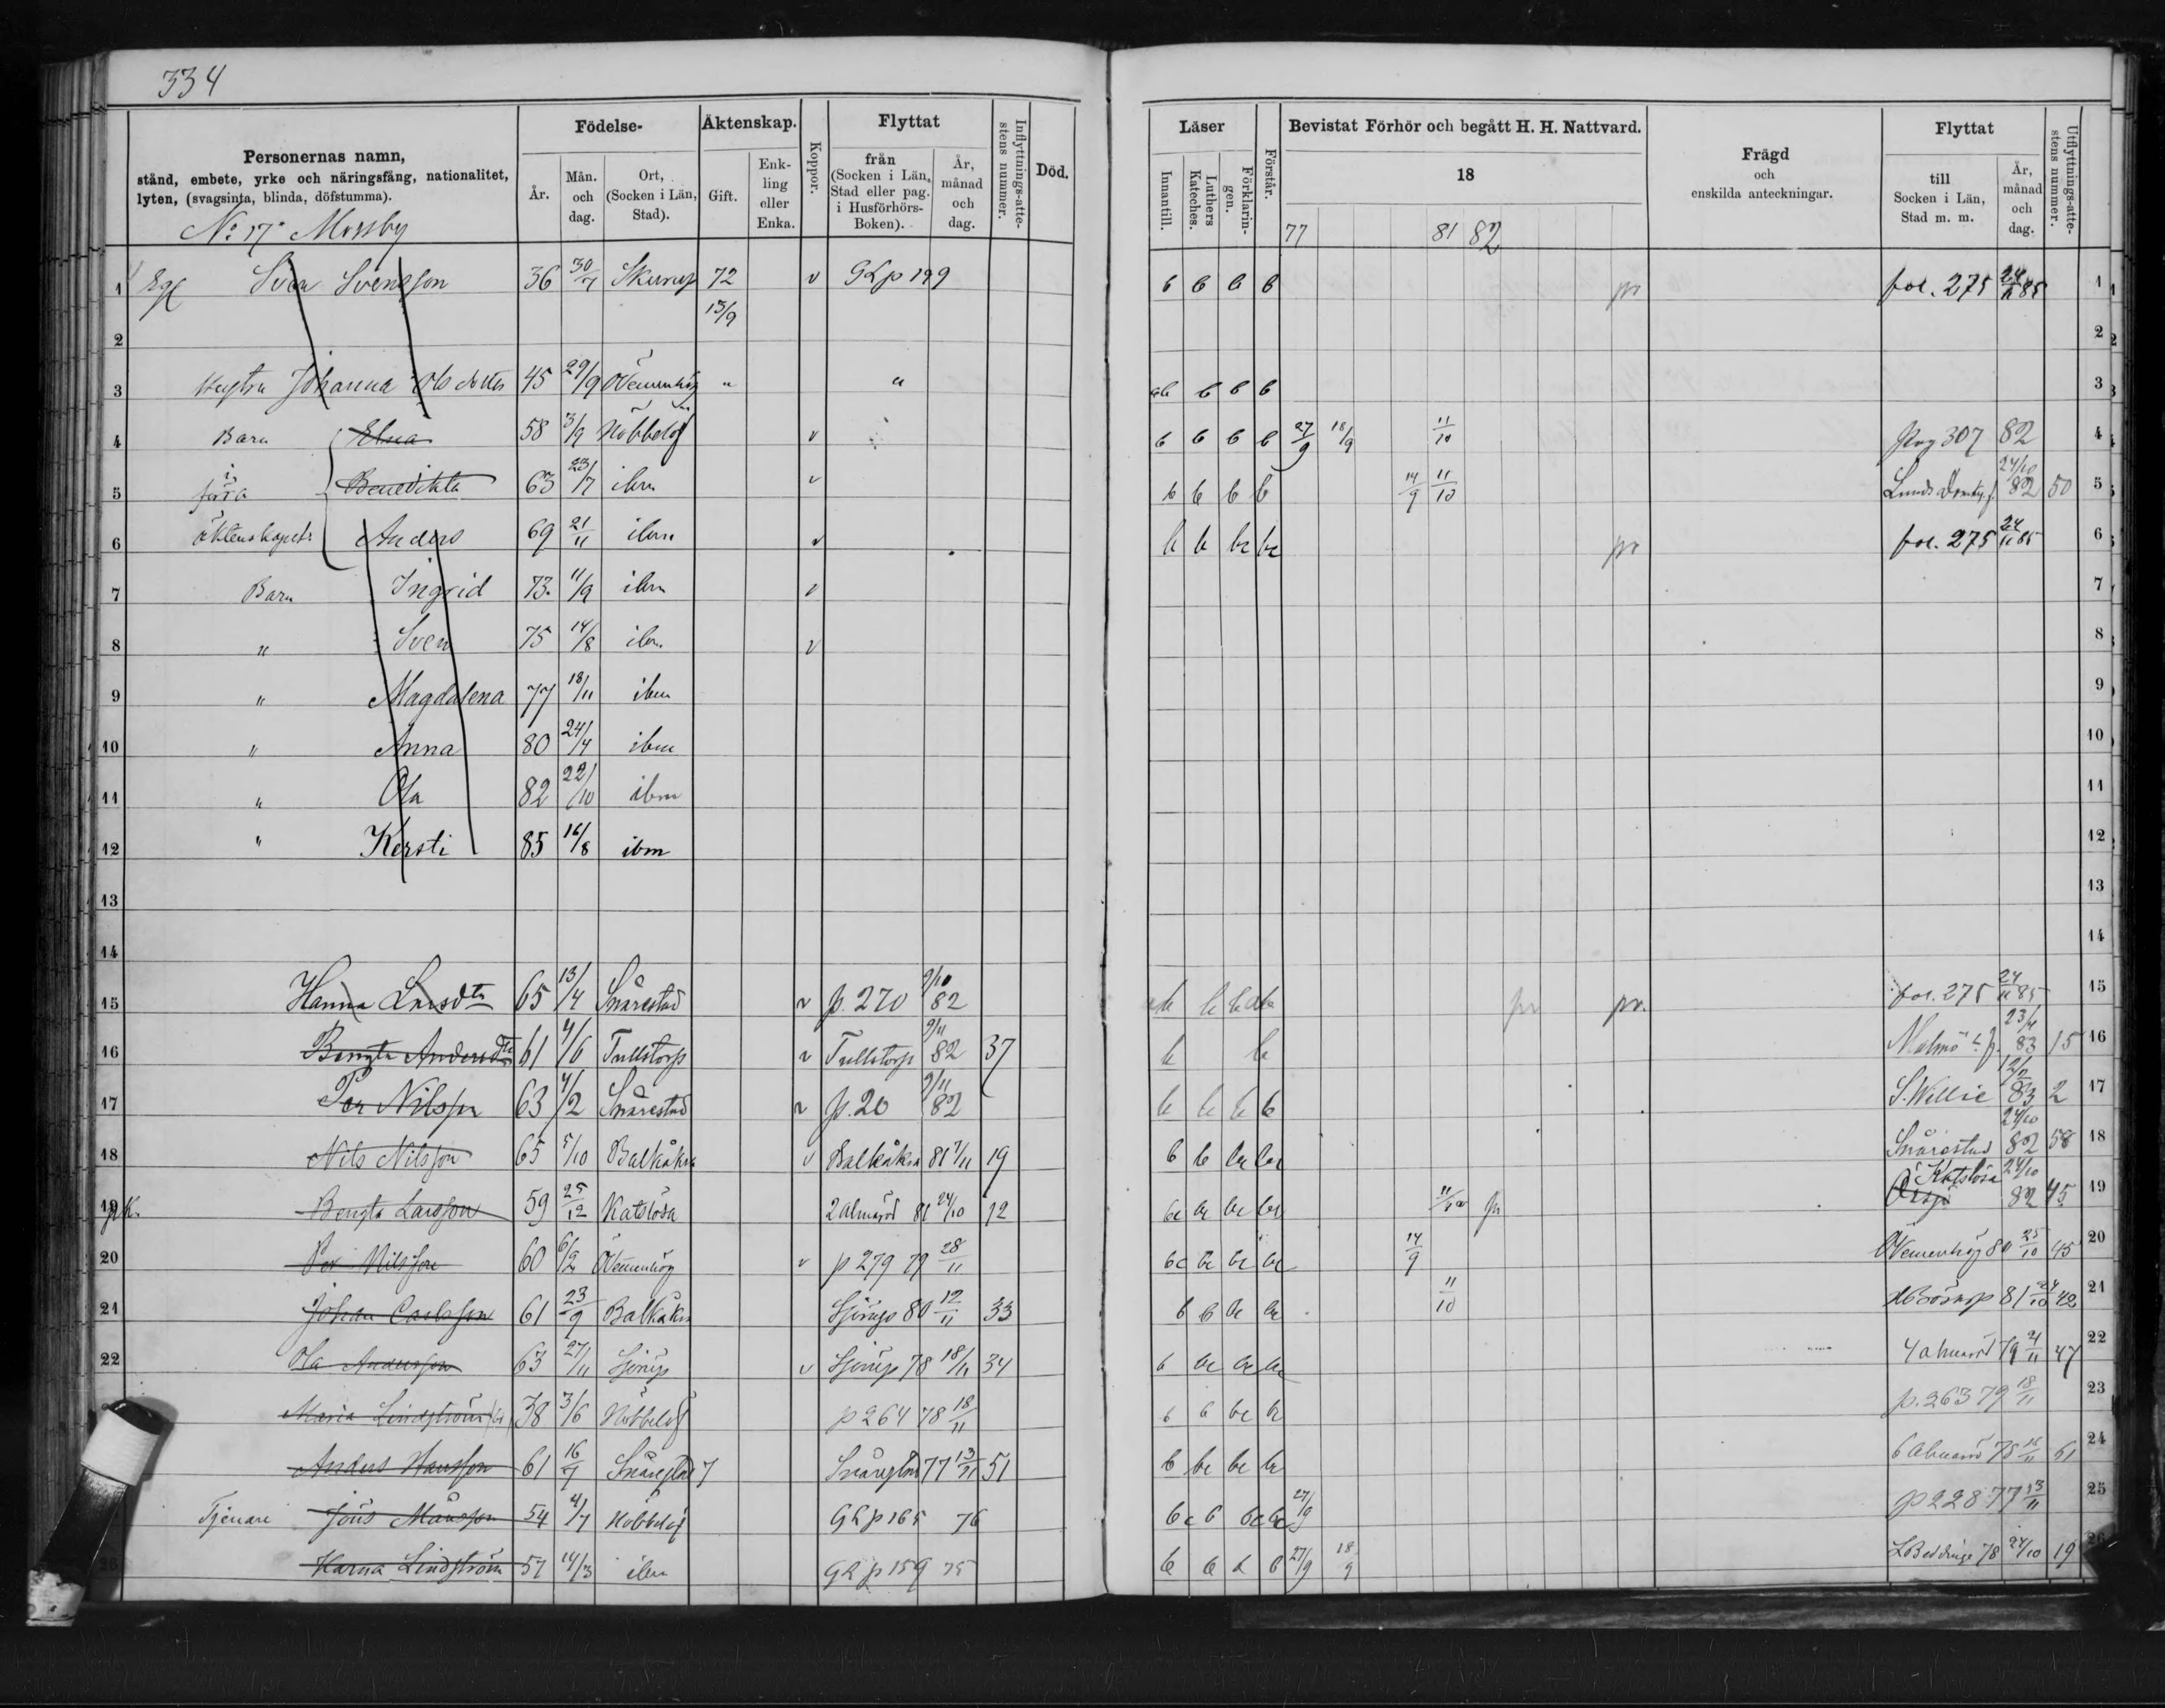 334
Personernas namn,
stånd, embete, yrke och näringsfång, nationalitet,
lyten, (svagsinta, blinda, döfstumma).
Födelse-
År.
Mån. och dag.
Ort, (Socken i Län, Stad).
Äktenskap.
Gift.
Enk-ling eller Enka.
Koppor.
Flyttat
från (Socken i Län, Stad eller pag. i Husförhörs-Boken).
År, månad och dag.
Inflyttnings-atte-stens nummer.
Död.
Läser
Innantill.
Luthers Kateches.
Förklarin-gen.
Förstår.
Bevistat Förhör och begått H. H. Nattvard.
18
77 81 82
Frägd
och
enskilda anteckningar.
Flyttat
till Socken i Län, Stad m. m.
År, månad och dag.
Utflyttnings-atte-stens nummer.
No 17 Mossby
1 Sven Svensson 36 30/7 Skurup 72 v GLp 199 b b b b pr fol. 275 24/11 85 1
13/9
2 2
3 Hustru Johanna Olsdotter 45 29/9 ÖVemmenhög " " ab b b b 3
4 Barn Elna 58 3/9 Nöbbelöf v b b b b 27/9 18/9 11/10 pag 307 82 4
5 i förra Benedikta 63 23/7 ibm v b b b b 14/9 11/10 Lunds 24/10 82 50 5
6 äktenskapet Anders 69 21/11 ibm v b b be be pr fol. 275 24/11 85 6
7 Barn Ingrid 73. 11/9 ibm v 7
8 " Sven 75 14/8 ibm v 8
9 " Magdalena 77 18/11 ibm 9
10 " Anna 80 24/4 ibm 10
11 " Ola 82 22/10 ibm 11
12 " Kersti 85 16/8 ibm 12
13 13
14 14
15 Hanna Larsdtr 65 13/4 Snårestad v p. 270 9/10 82 pr pr. fol. 275 24/11 85 15
16 Bengta Andersdtr 61 4/6 Tullstorp v Tullstorp 9/11 82 37 b b Malmö 83 15 16
17 Per Nilsson 63 4/2 Snårestad v p. 20 9/11 82 b b b b S. Willie 83 2 17
18 Nils Nilsson 65 5/10 Balkåkra v Balkåkra 81 7/11 19 b b be be Snårestad 24/10 82 58 18
19 Bengta Larsson 59 25/12 Katslösa 2 almaröd 81 24/10 12 be be be be 11/10 pr Örsjö Katslösa 24/10 82 45 19
20 Per Nilsson 60 6/2 ÖVemmenhög v p 279 79 28/11 be be be be 14/9 ÖVemmenhög 80 25/10 45 20
21 Johan Carlsson 61 23/9 Balkåkra Sjörup 80 12/11 33 b b be be 11/10 81 24/10 42 21
22 Ola Andersson 63 27/11 Sjörup v Sjörup 78 18/11 34 b be be be 4 almaröd 79 21/11 47 22
Maria Lindström 38 3/6 Nöbbelöf p 264 78 18/11 b b be b p. 263 79 18/11 23
Anders Hansson 61 16/7 Snårestad Snårestad 77 13/11 51 b be be be 6 almaröd 78 61 24
Tjenare Jöns Månsson 54 4/7 Nöbbelöf GLp 165 76 be b be be 27/9 p 228 77 13/11 25
Harna Lindström 57 14/3 ibm GLp 159 75 b b b b 27/9 18/9 LBeddinge 78 24/10 19 26